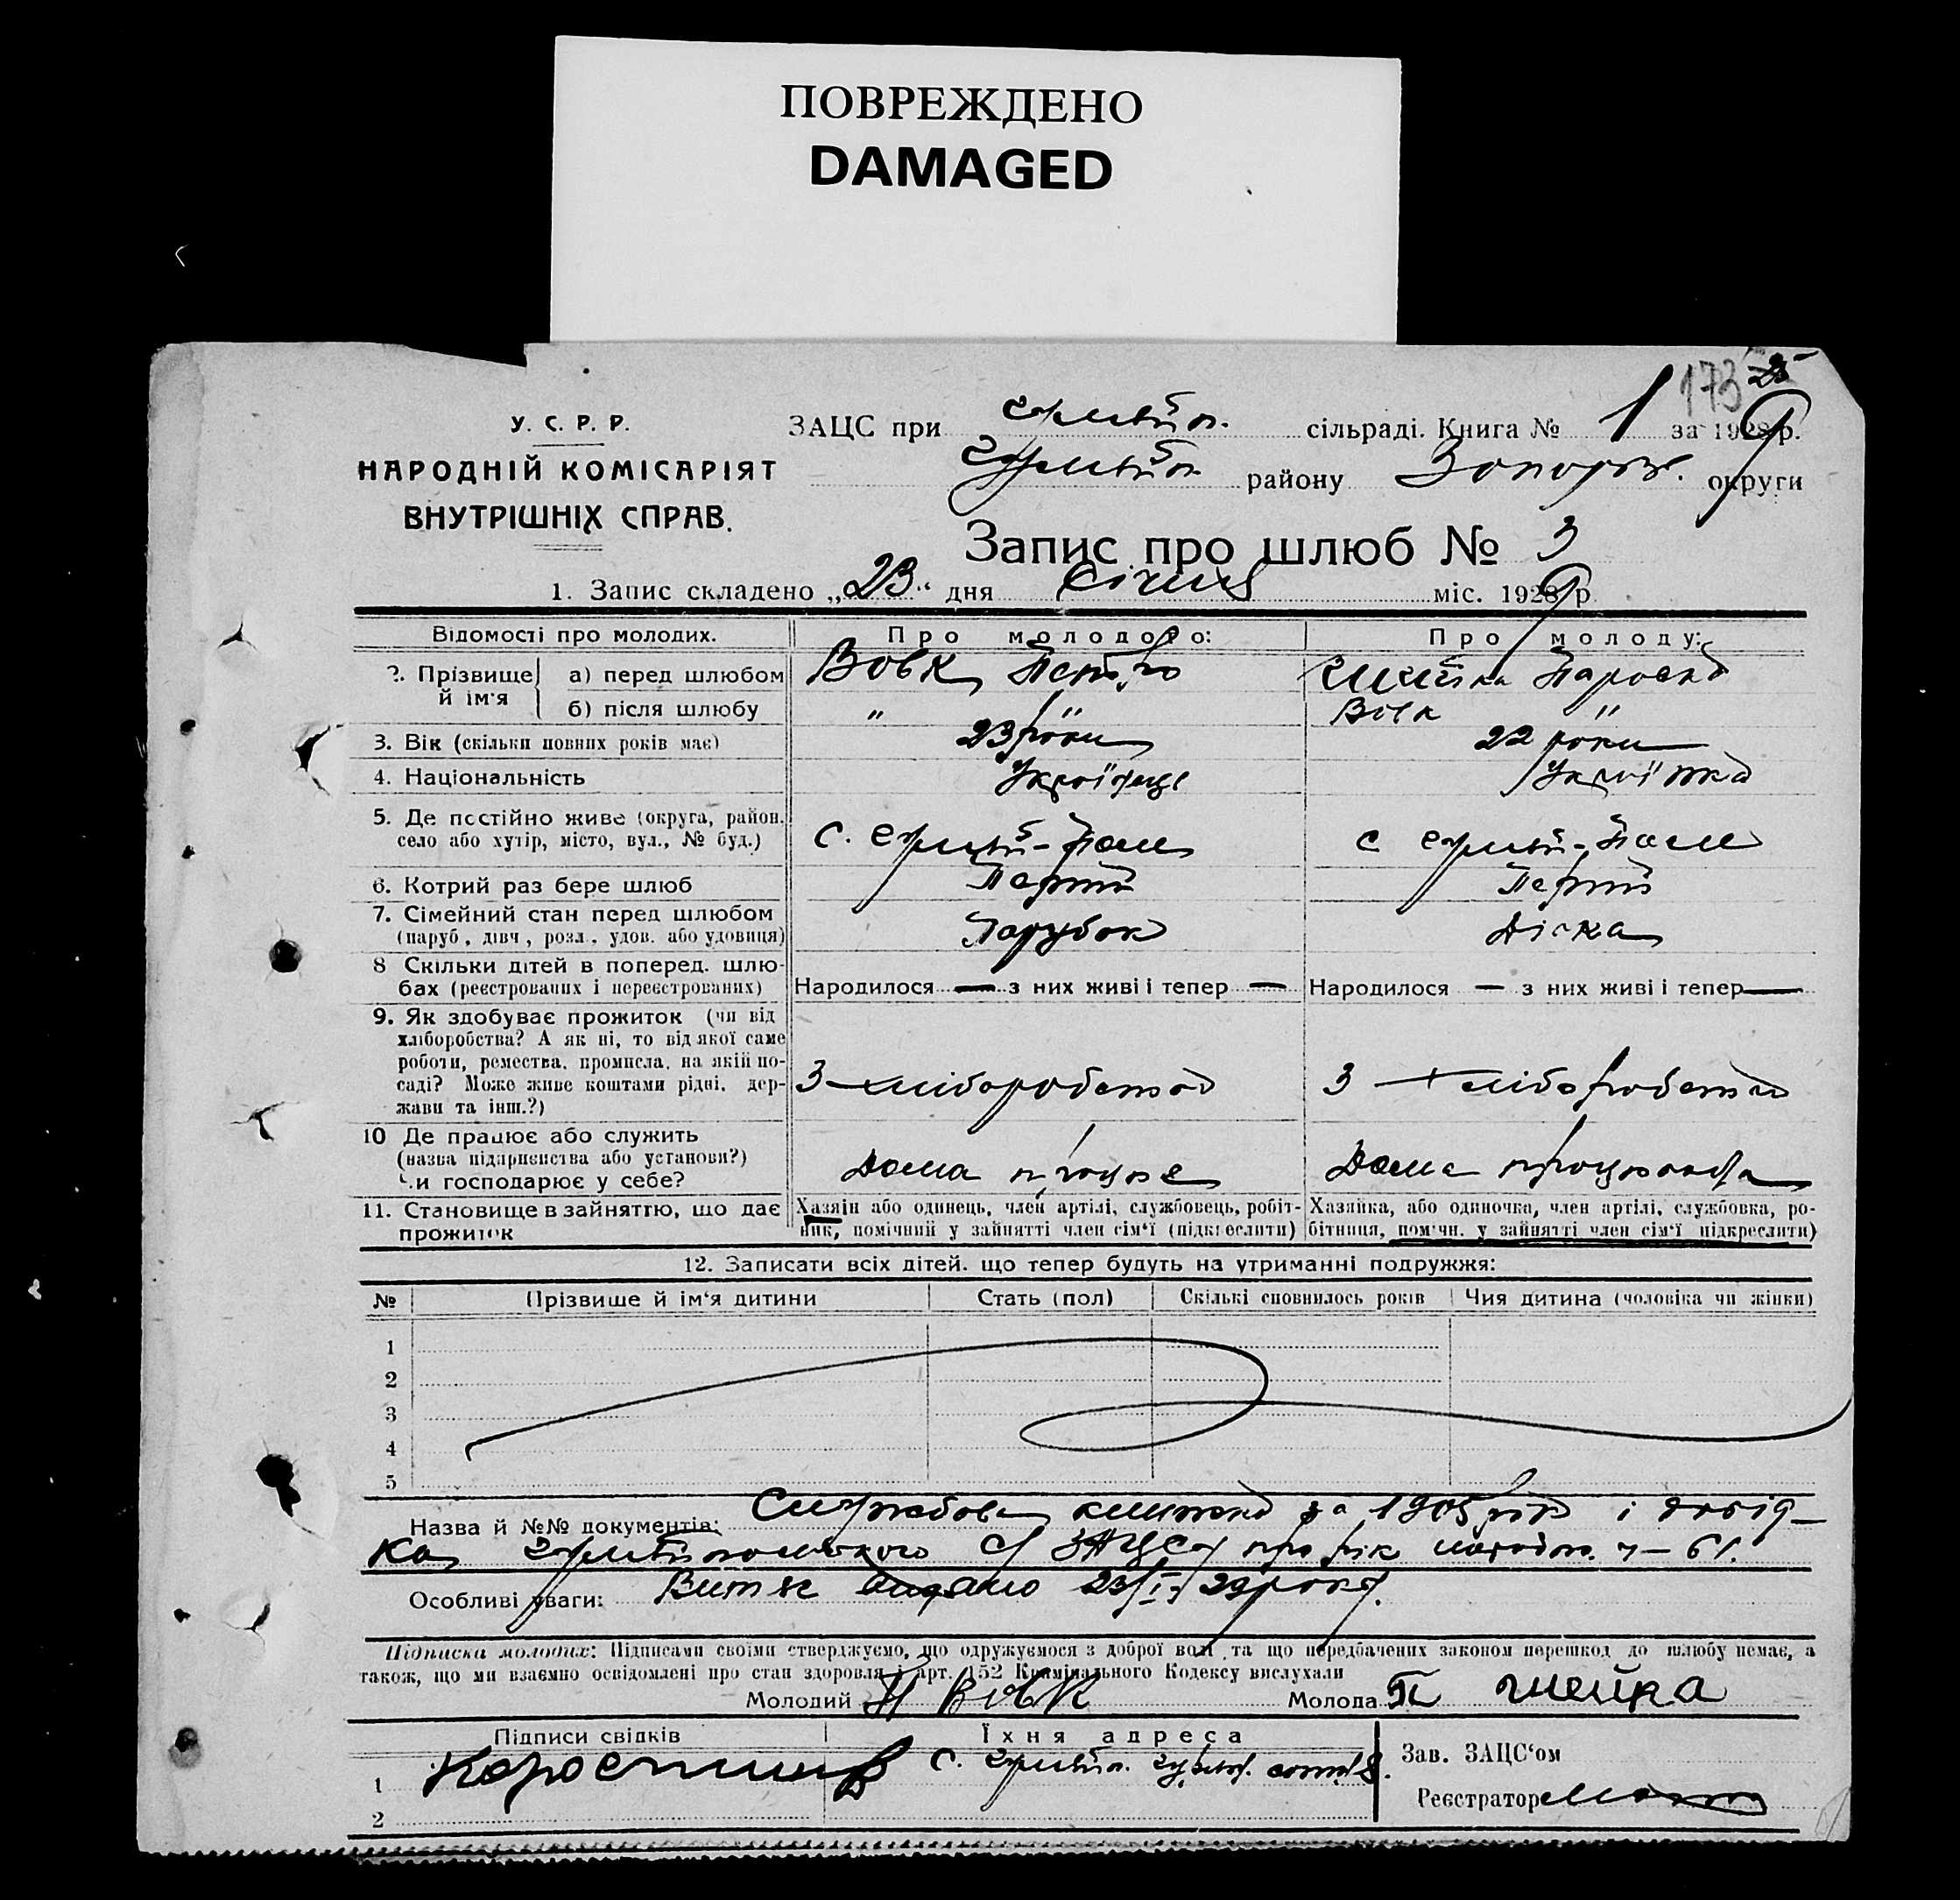 ПОВРЕЖДЕНО
DAMAGED
173
У. С. Р. Р.
НАРОДНІЙ КОМІСАРІЯТ
ВНУТРІШНІХ СПРАВ.
ЗАЦС при сільраді. Книга № 1 за 1929 р.
району Запорож. округи
Запис про шлюб № 3
1. Запис складено „23" дня Січня міс. 1929 р
Відомості про молодих. Про молодого: Про молоду:
2. Прізвище й ім'я а) перед шлюбом Вовк Петро Параска
б) після шлюбу " " Вовк "
3. Вік (скільки повних років має) 23 роки 22 роки
4. Національність Українець Українка
5. Де постійно живе (округа, район, село або хутір, місто, вул., № буд.) с. с
6. Котрий раз бере шлюб Перший Перший
7. Сімейний стан перед шлюбом (паруб., дівч., розл., удов. або удовиця) Парубок Дівка
8 Скільки дітей в поперед. шлюбах (реєстрованих і нереєстрованих) Народилося — з них живі і тепер — Народилося — з них живі і тепер —
9. Як здобуває прожиток (чи від
хліборобства? А як ні, то від якої саме
роботи, ремества, промисла, на якій по-
саді? Може живе коштами рідні, дер-
жави та інш.?) З хліборобства З хліборобства
10 Де працює або служить
(назва підприємства або установи?)
Чи господарює у себе? Дома працює Дома
11. Становище в зайняттю, що дає прожиток
Хазяїн або одинець, член артілі, службовець, робіт-
ник, помічний у зайнятті член сім'ї (підкреслити)
Хазяйка, або одиночка, член артілі, службовка, ро-
бітниця, помічн. у зайнятті член сім'ї підкреслити)
12. Записати всіх дітей, що тепер будуть на утриманні подружжя:
№ Прізвище й ім'я дитини Стать (пол) Скількі сповнилось років Чия дитина (чоловіка чи жінки)
1
2
3
4
5
Назва й №№ документів: Службова книжка за 1905 рік і довід-
ка ЗАЦСу про рік народж. ч — 61.
Особливі уваги: Витяг видано 23/I 29 року.
Підписка молодих: Підписами своїми стверджуємо, що одружуємося з доброї волі та що передбачених законом перешкод до шлюбу немає, а
також, що ми взаємно освідомлені про стан здоровля і арт. 152 Кримінального Кодексу вислухали
Молодий П Вовк Молода П
Підписи свідків Їхня адреса
1 с.
2
Зав. ЗАЦС'ом
Реєстратор